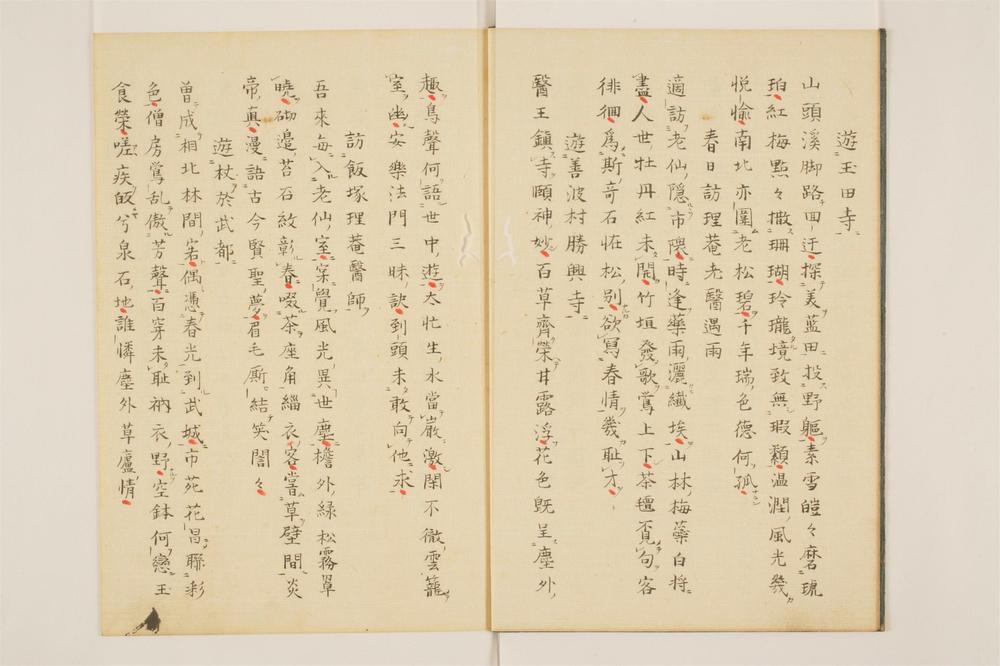 遊玉田寺
山頭溪脚路回迂探美藍田投野軀素雪皚々磨琉
珀紅梅點々撒珊瑚玲瓏境致無瑕纇温潤風光幾
悦愉南北亦圍老松碧千年瑞色德何孤
春日訪理菴老醫遇雨
適訪老仙隱市隈時逢藥雨灑纖埃山林梅蘂白将
盡人世牡丹紅未開竹垣發歌鶯上下茶檀覓句客
徘徊爲斯竒石恠松別欲寫春情幾耻才
遊善波村勝興寺
醫王鎭寺頤神妙百草齊榮甘露浮花色既呈塵外
趣鳥聲何語世中遊大忙生水當巖激閑不徹雲籠
室幽安樂法門三昧訣到頭未敢向他求
訪飯塚理菴醫師
吾來毎入老仙室寐覺風光異世塵檐外緑松霧罩
曉砌邊苔石紋彰春啜茶座角緇衣客甞草壁間炎
帝真漫語古今賢聖夢眉毛厮結笑誾々
遊杖於武都
曽成相北林間宕偶憑春光到武城市苑花昌聯彩
色僧房鶯乱傲芳聲百穿未耻衲衣野空鉢何戀玉
食榮嗟疾皈兮泉石地誰憐塵外草廬情